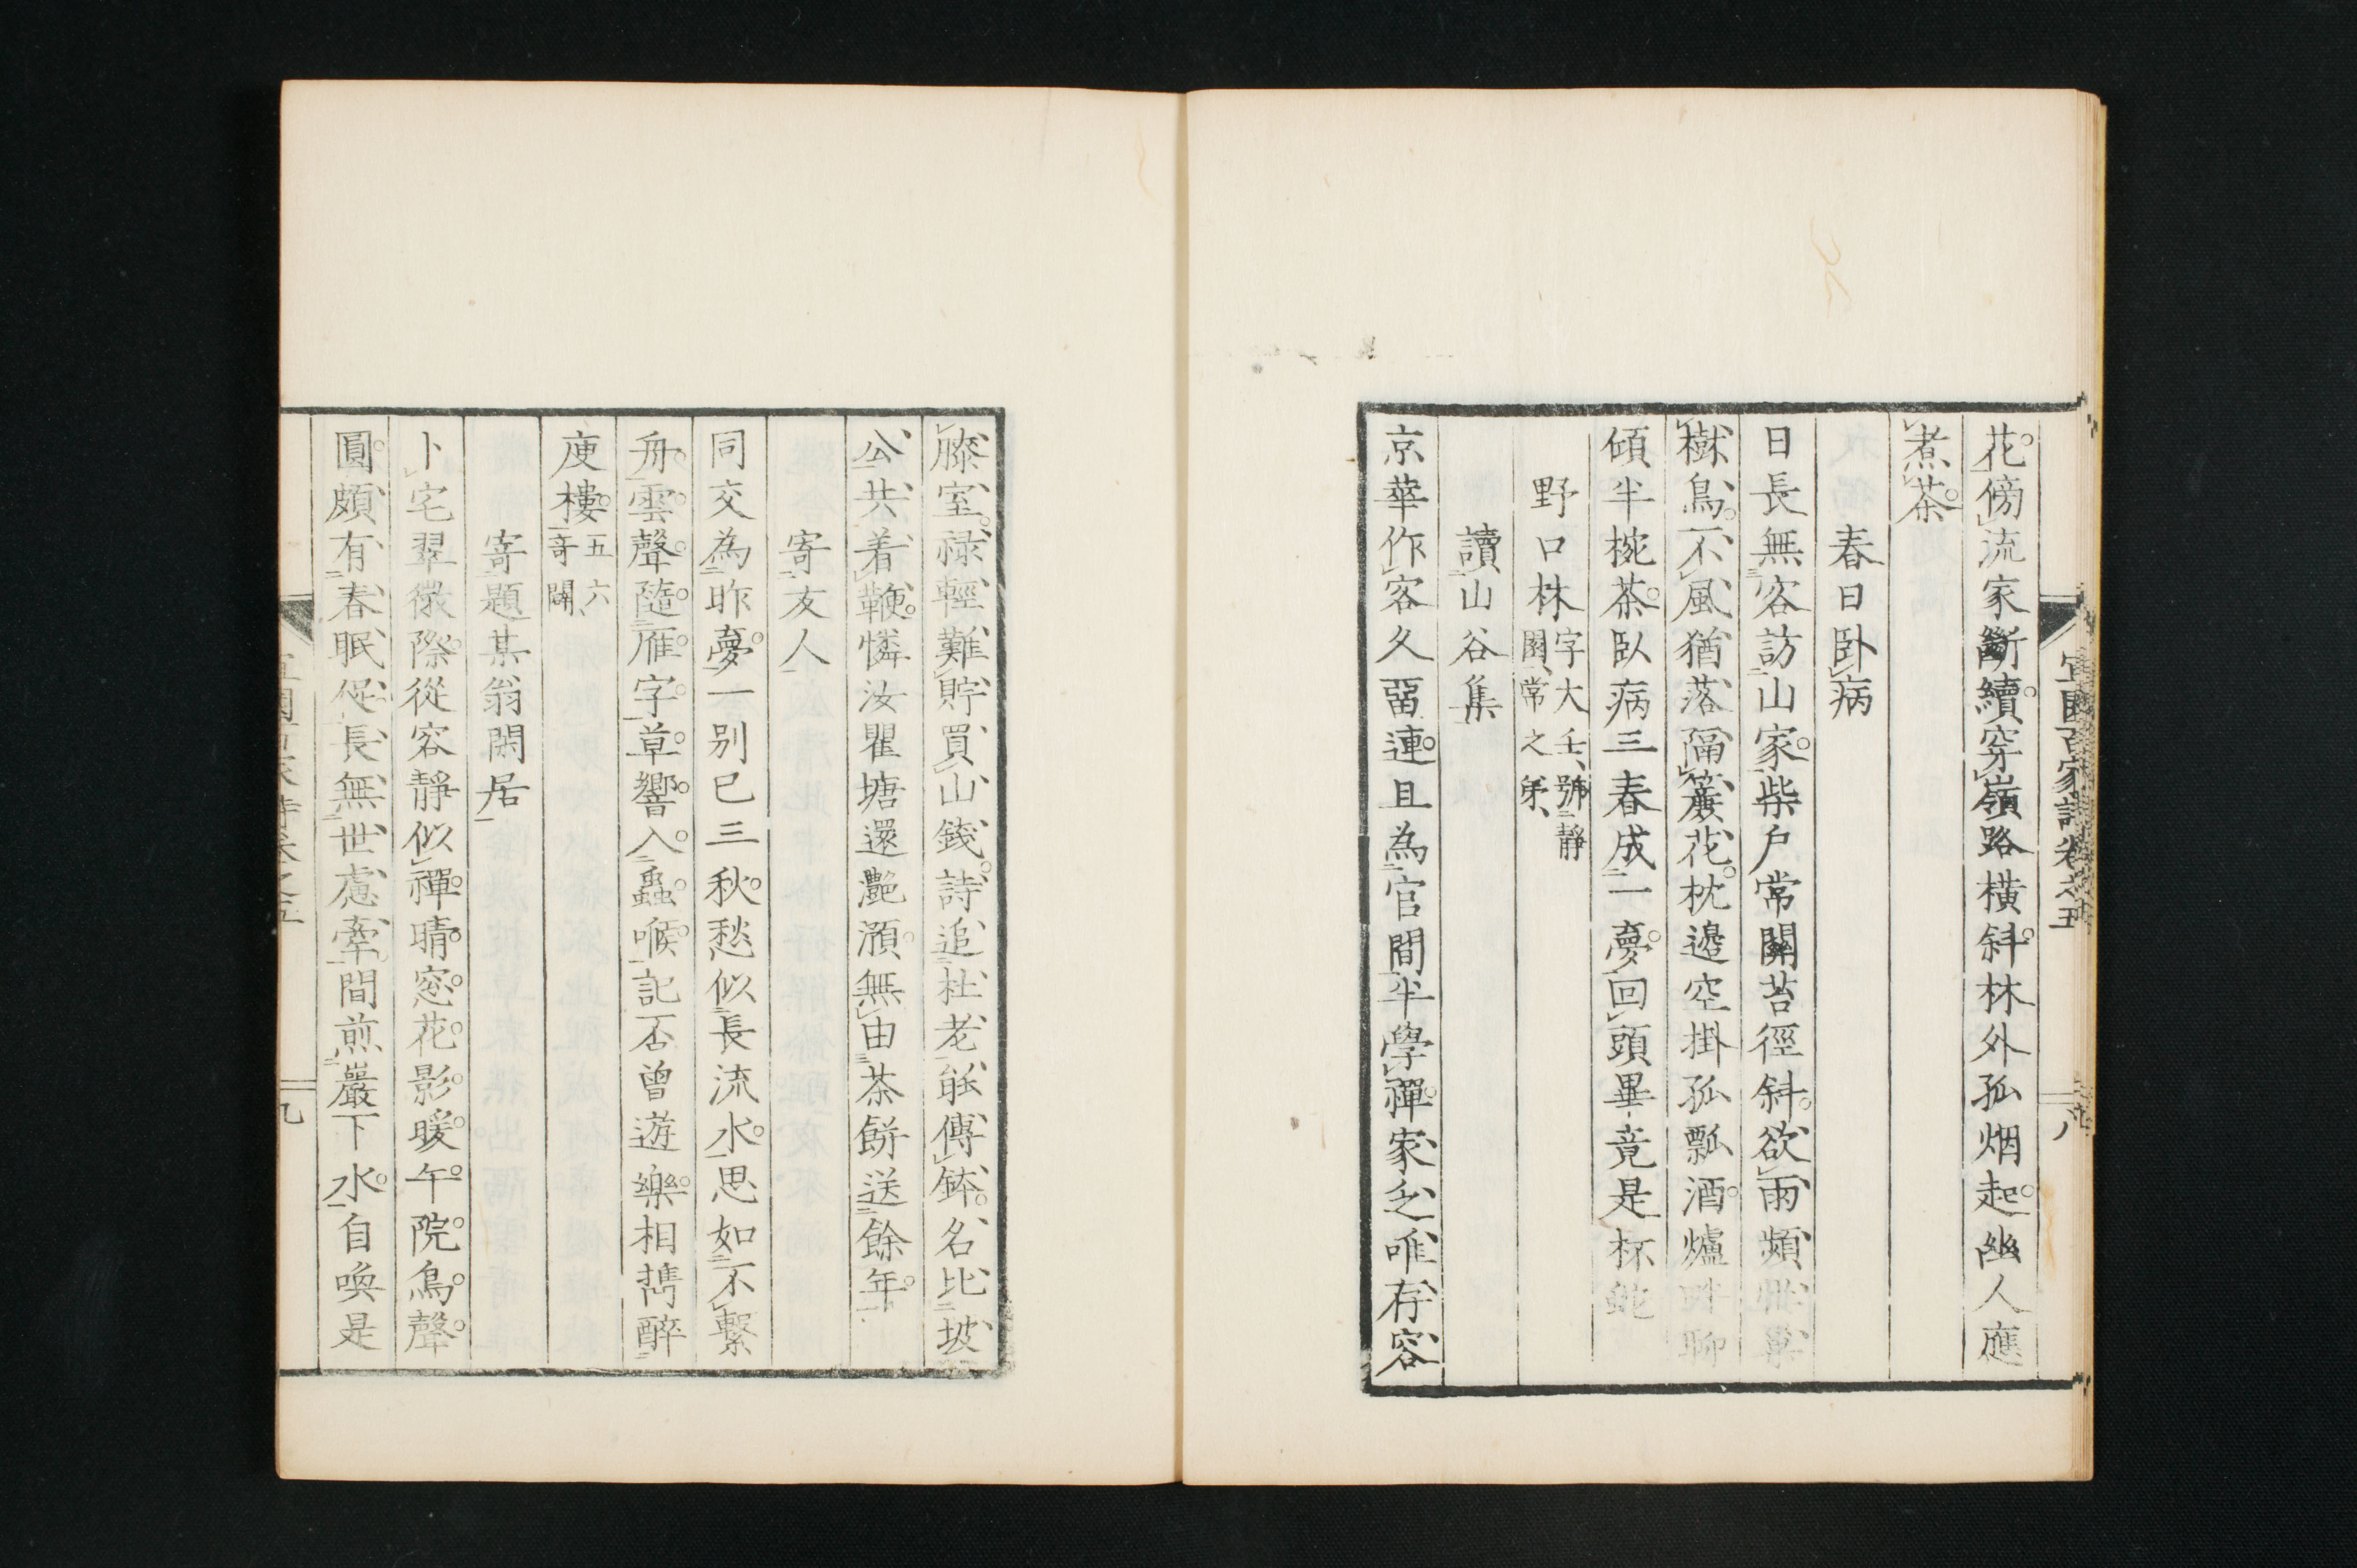 宜園百家詩卷之五
八
花傍流家斷續穿嶺路橫斜林外孤烟起幽人應
煮茶
春日臥病
日長無客訪山家柴戶常關苔徑斜欲雨頻
樹鳥不風猶落隔簾花枕邊空掛孤瓢酒爐畔聊
傾半椀茶臥病三春成一夢回頭畢竟是杯蛇
野口林字大壬號靜
園常之弟
讀山谷集
京華作客久留連且為官間半學禪家乏唯存容
膝室祿輕難貯買山錢詩追杜老能傳鉢名比坡
公共着鞭憐汝瞿塘還灩澦無由茶餅送餘年
寄友人
同交為昨夢一別已三秋愁似長流水思如不繫
舟雲聲隨雁字草響入蟲喉記否曾遊樂相携醉
庾樓五六
奇闢
寄題某翁閑居
卜宅翠微際從容靜似禪晴窓花影暖午院鳥聲
圓頗有春眠促長無世慮牽間煎巖下水自喚是
九